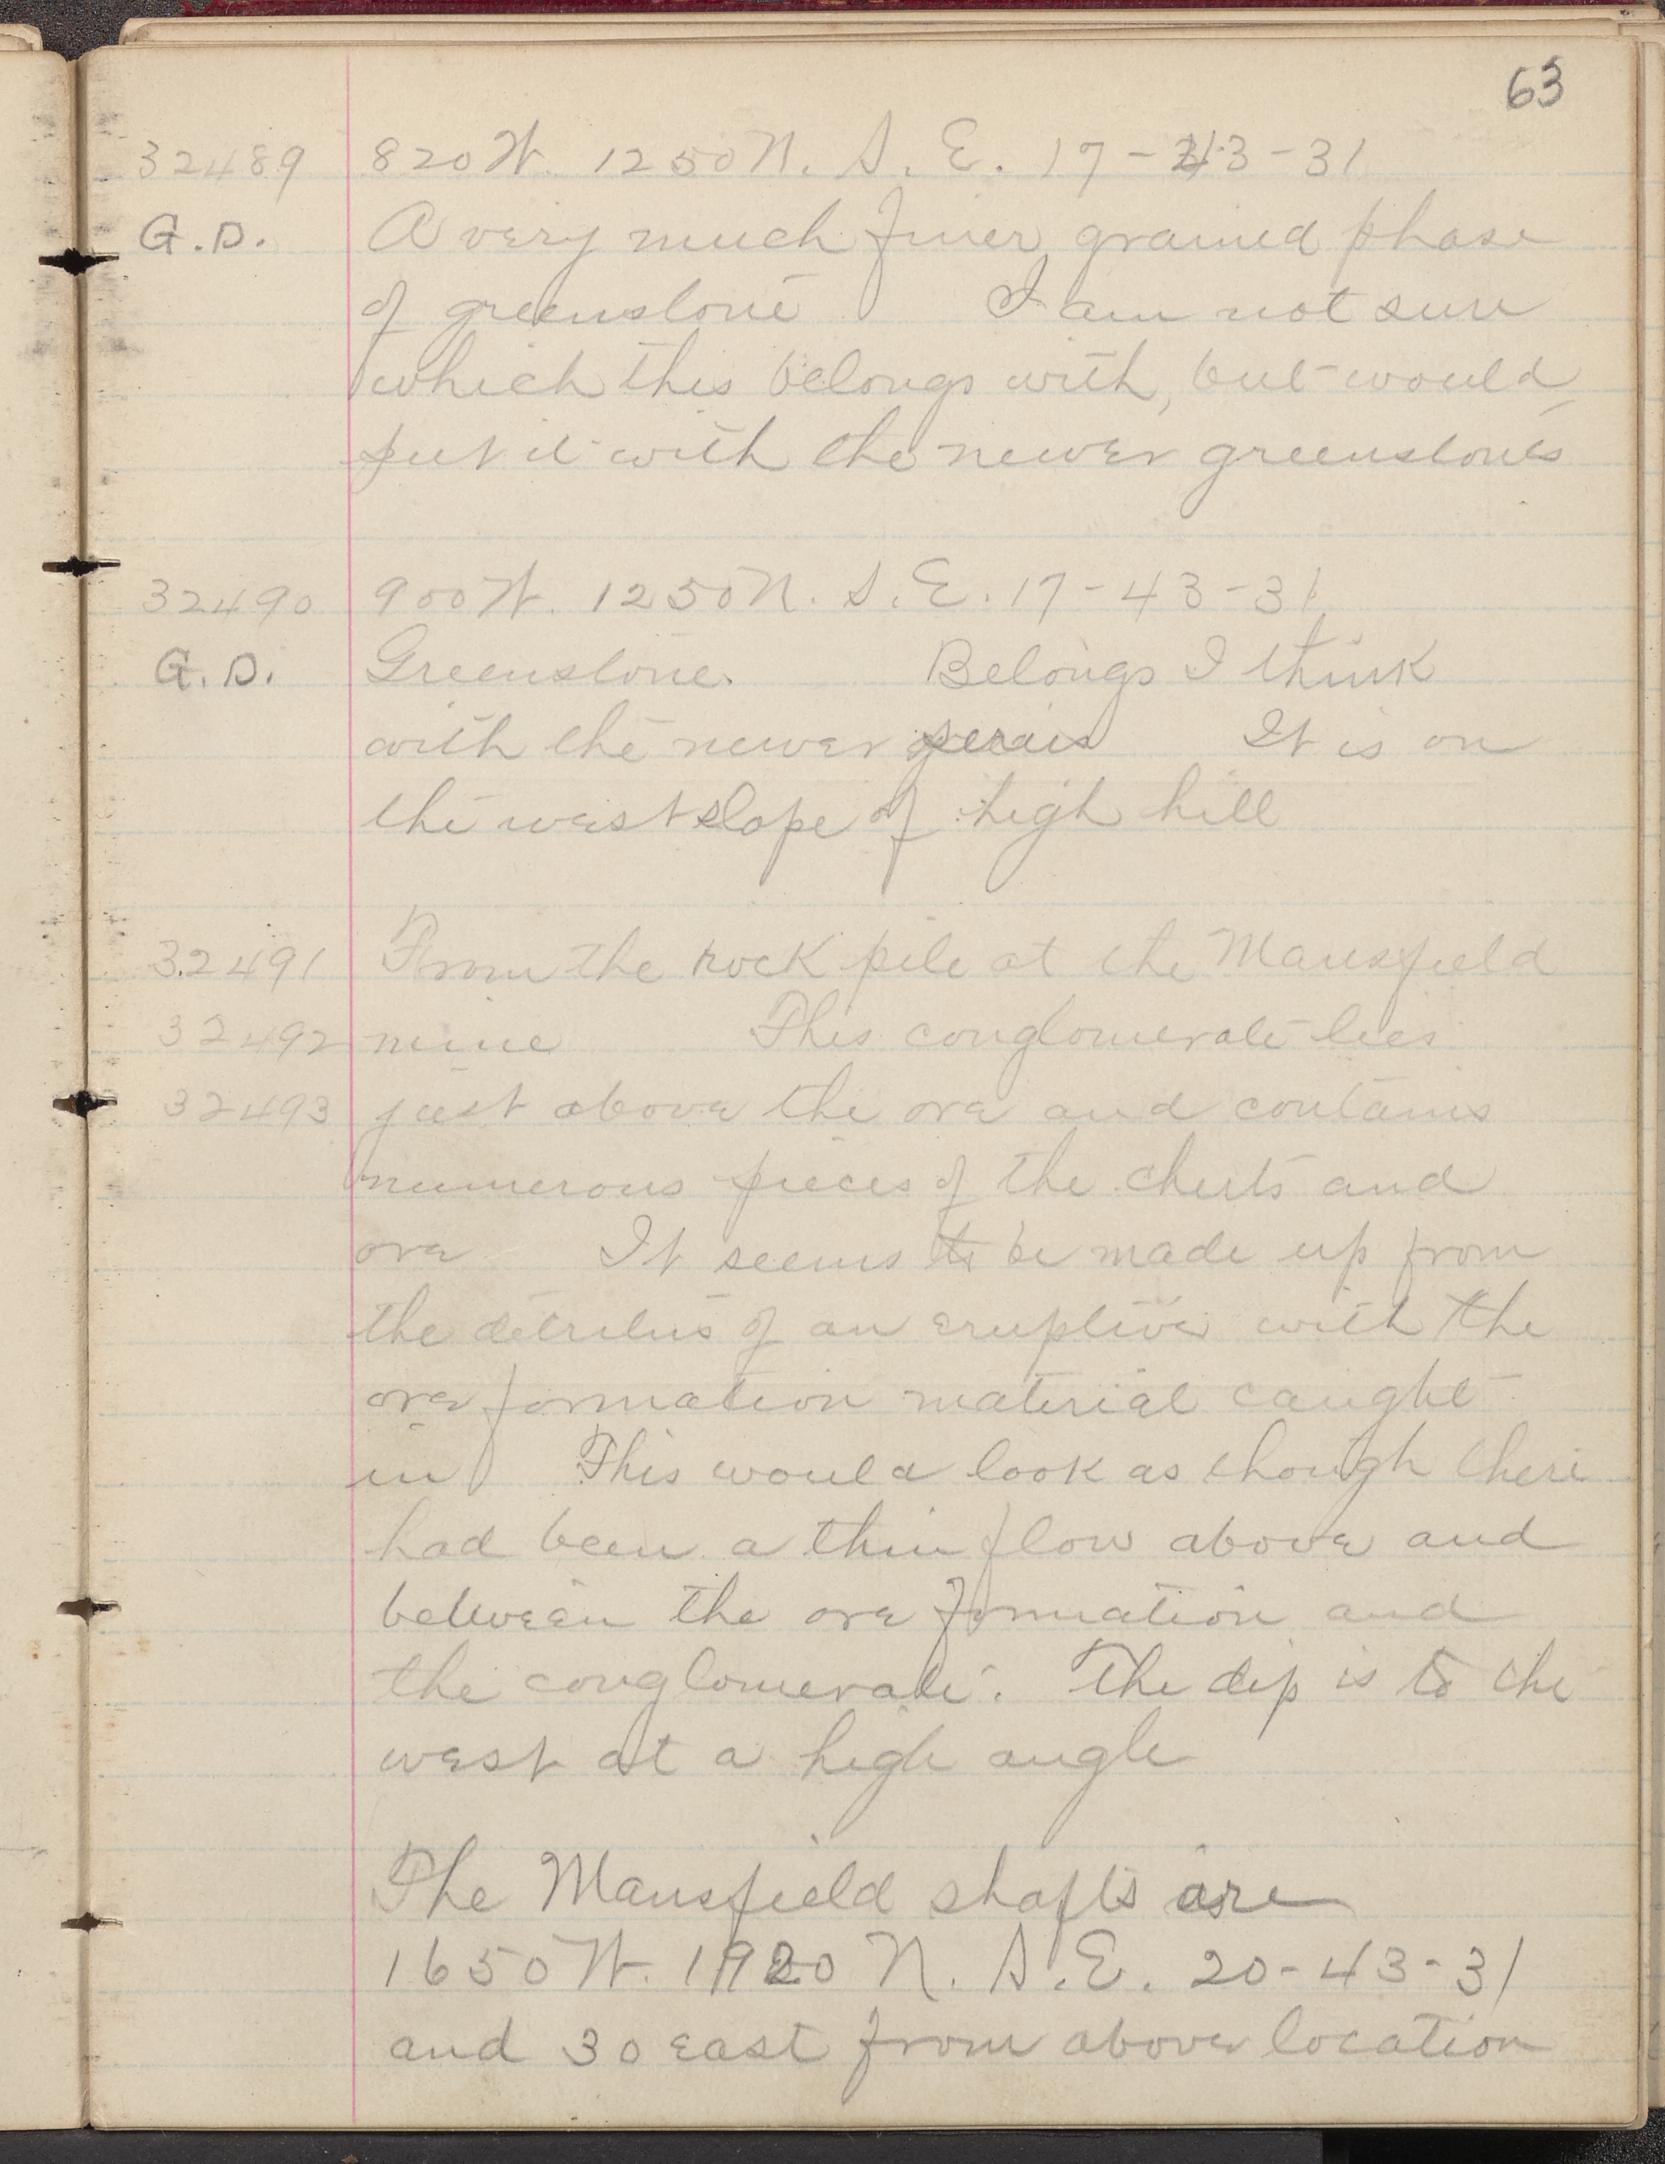 63
32489 820 W. 1250 N. S. E. 17-43-31
G.D. A very much finer grained phase
of greenstone I am not sure
which this belongs with, but would
put it with the newer greenstones
32490 900 W. 1250 N. S. E. 17-43-31
G.D. Greenstone. Belongs I think
with the newer series It is on
the west slope of high hill
32491 From the rock pile at the Mansfield
32492 mine This conglomerate lies
32493 just above the ore and contains
numerous pieces of the cherts and
ore It seems to be made up from
the detritus of an eruptive with the
ore formation material caught
in This would look as though there
had been a thin flow above and
between the ore formation and
the conglomerate. The dip is to the
west at a high angle
The Mansfield shafts are
1650 W. 1920 N. S. E. 20-43-31
and 30 east from above location